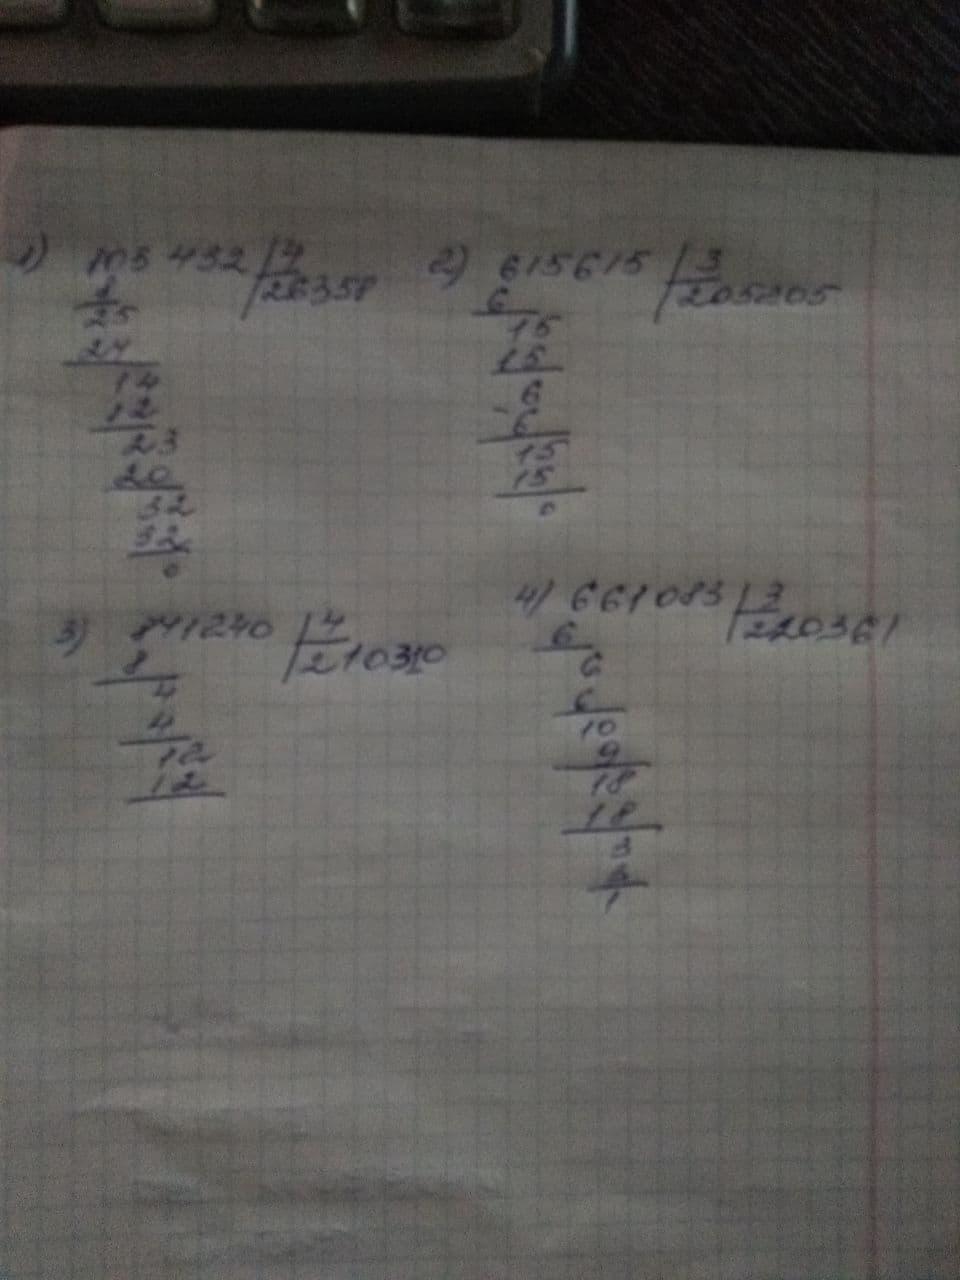 1) 105 432 | 4
8 26358
25
24
14
12
23
20
32
32
0
2) 615615 | 3
6 205205
15
15
- 6
6
15
15
0
3) 841240 | 4
8 210310
4
4
12
12
4) 661083 | 3
6 220361
6
6
10
9
18
18
3
3
1